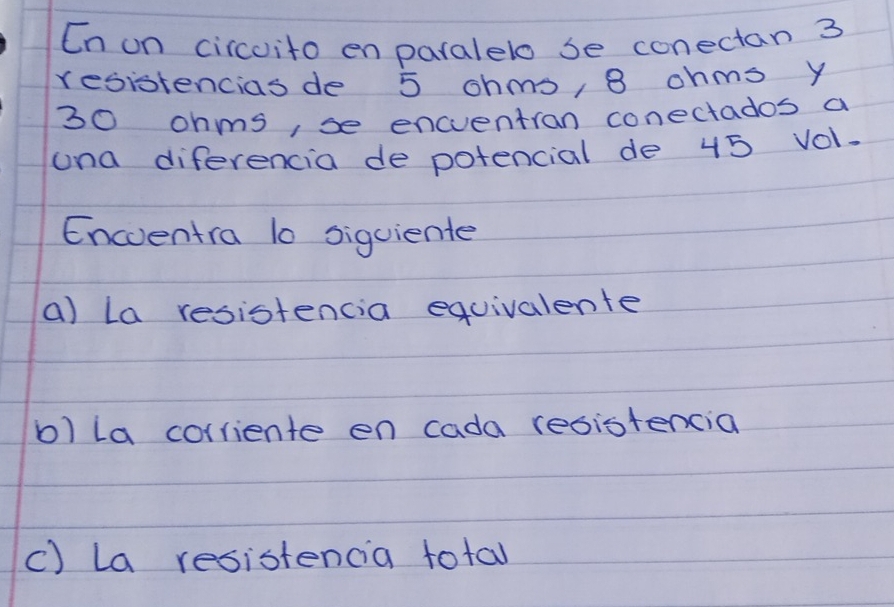 En un circuito en paralelo se conectan 3
resistencias de 5 ohms, 8 ohms y
30 ohms, se encuentran conectados a
una diferencia de potencial de 45 Vol.
Encuentra lo siguiente
a) La resistencia equivalente
b) La corriente en cada resistencia
c) La resistencia total